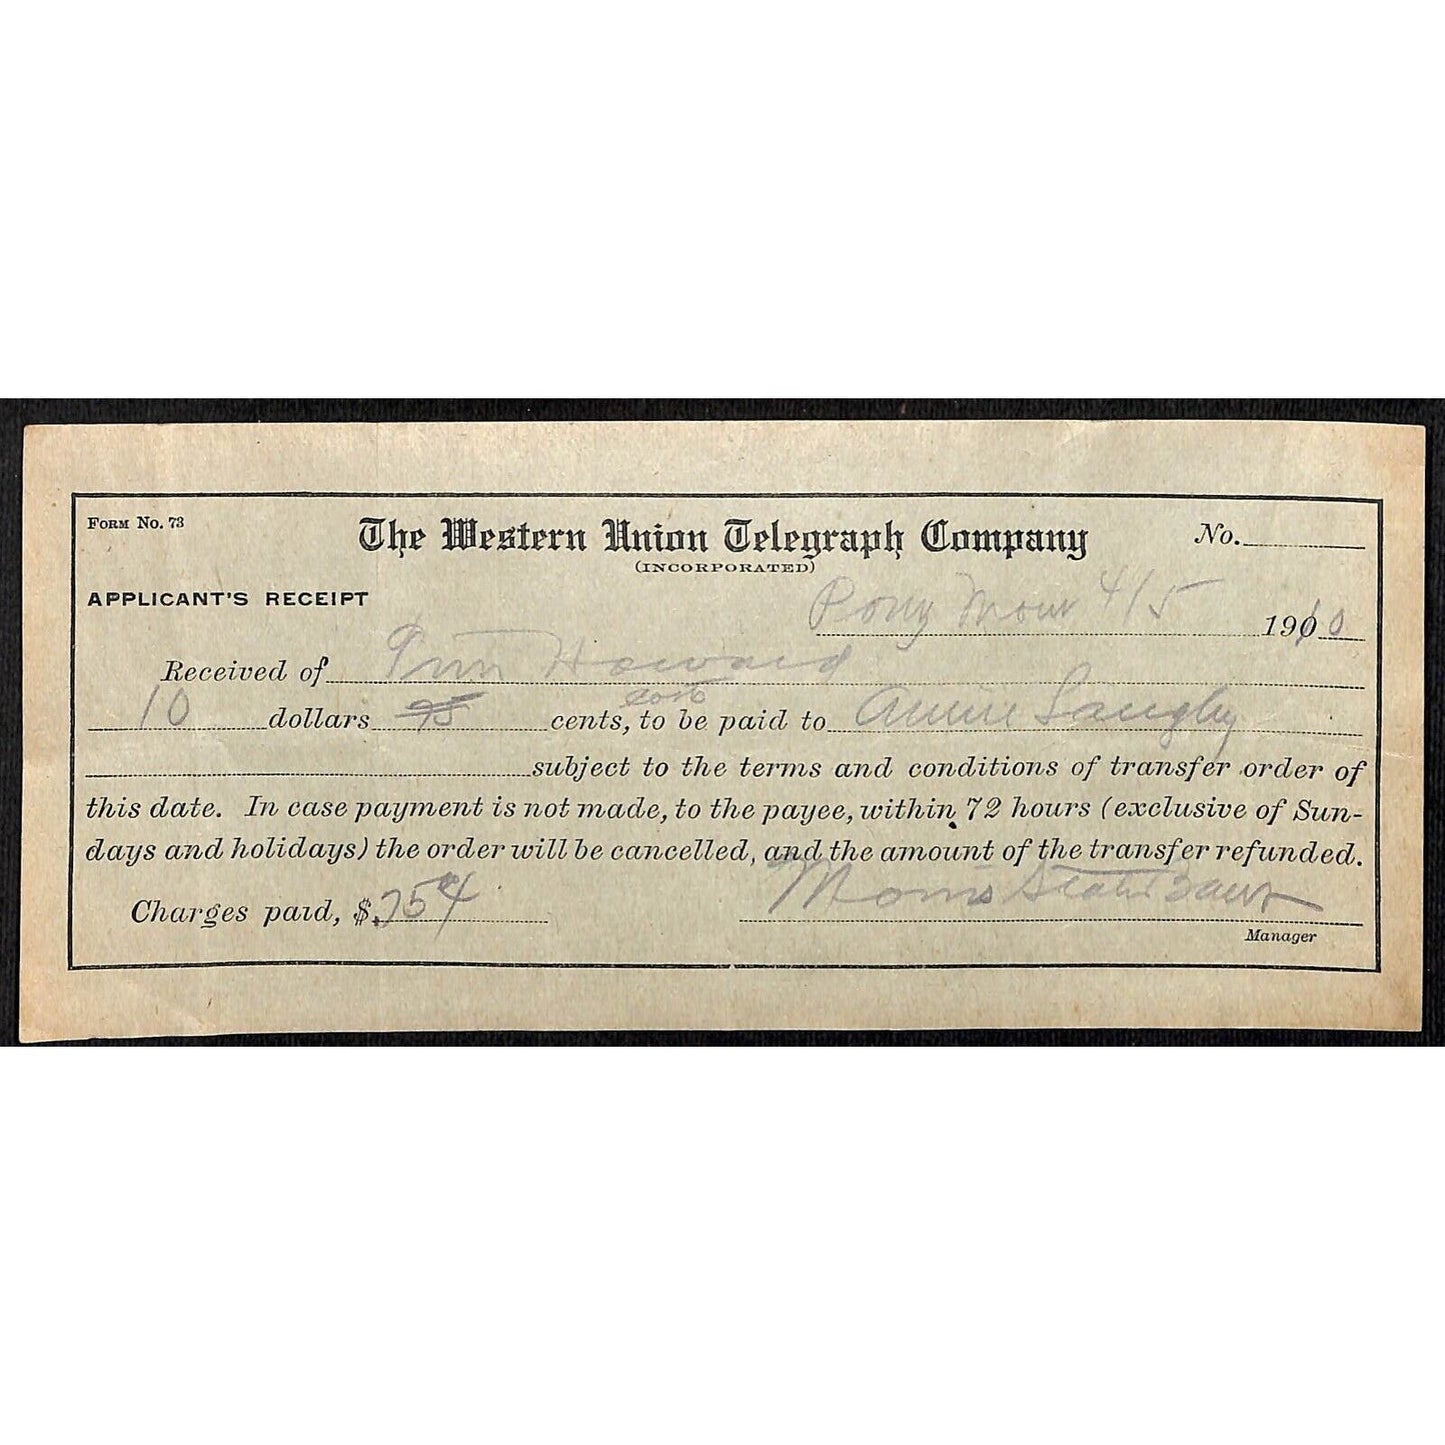 FORM No. 73
The Western Union Telegraph Company
No.
(INCORPORATED)
APPLICANT'S RECEIPT
Pony Mont 4/5 1910
Received of Howard
10 dollars 95 cents, to be paid to Annie Langley
subject to the terms and conditions of transfer order of
this date. In case payment is not made, to the payee, within 72 hours (exclusive of Sun-
days and holidays) the order will be cancelled, and the amount of the transfer refunded.
Charges paid, $ Morris State Bank
Manager